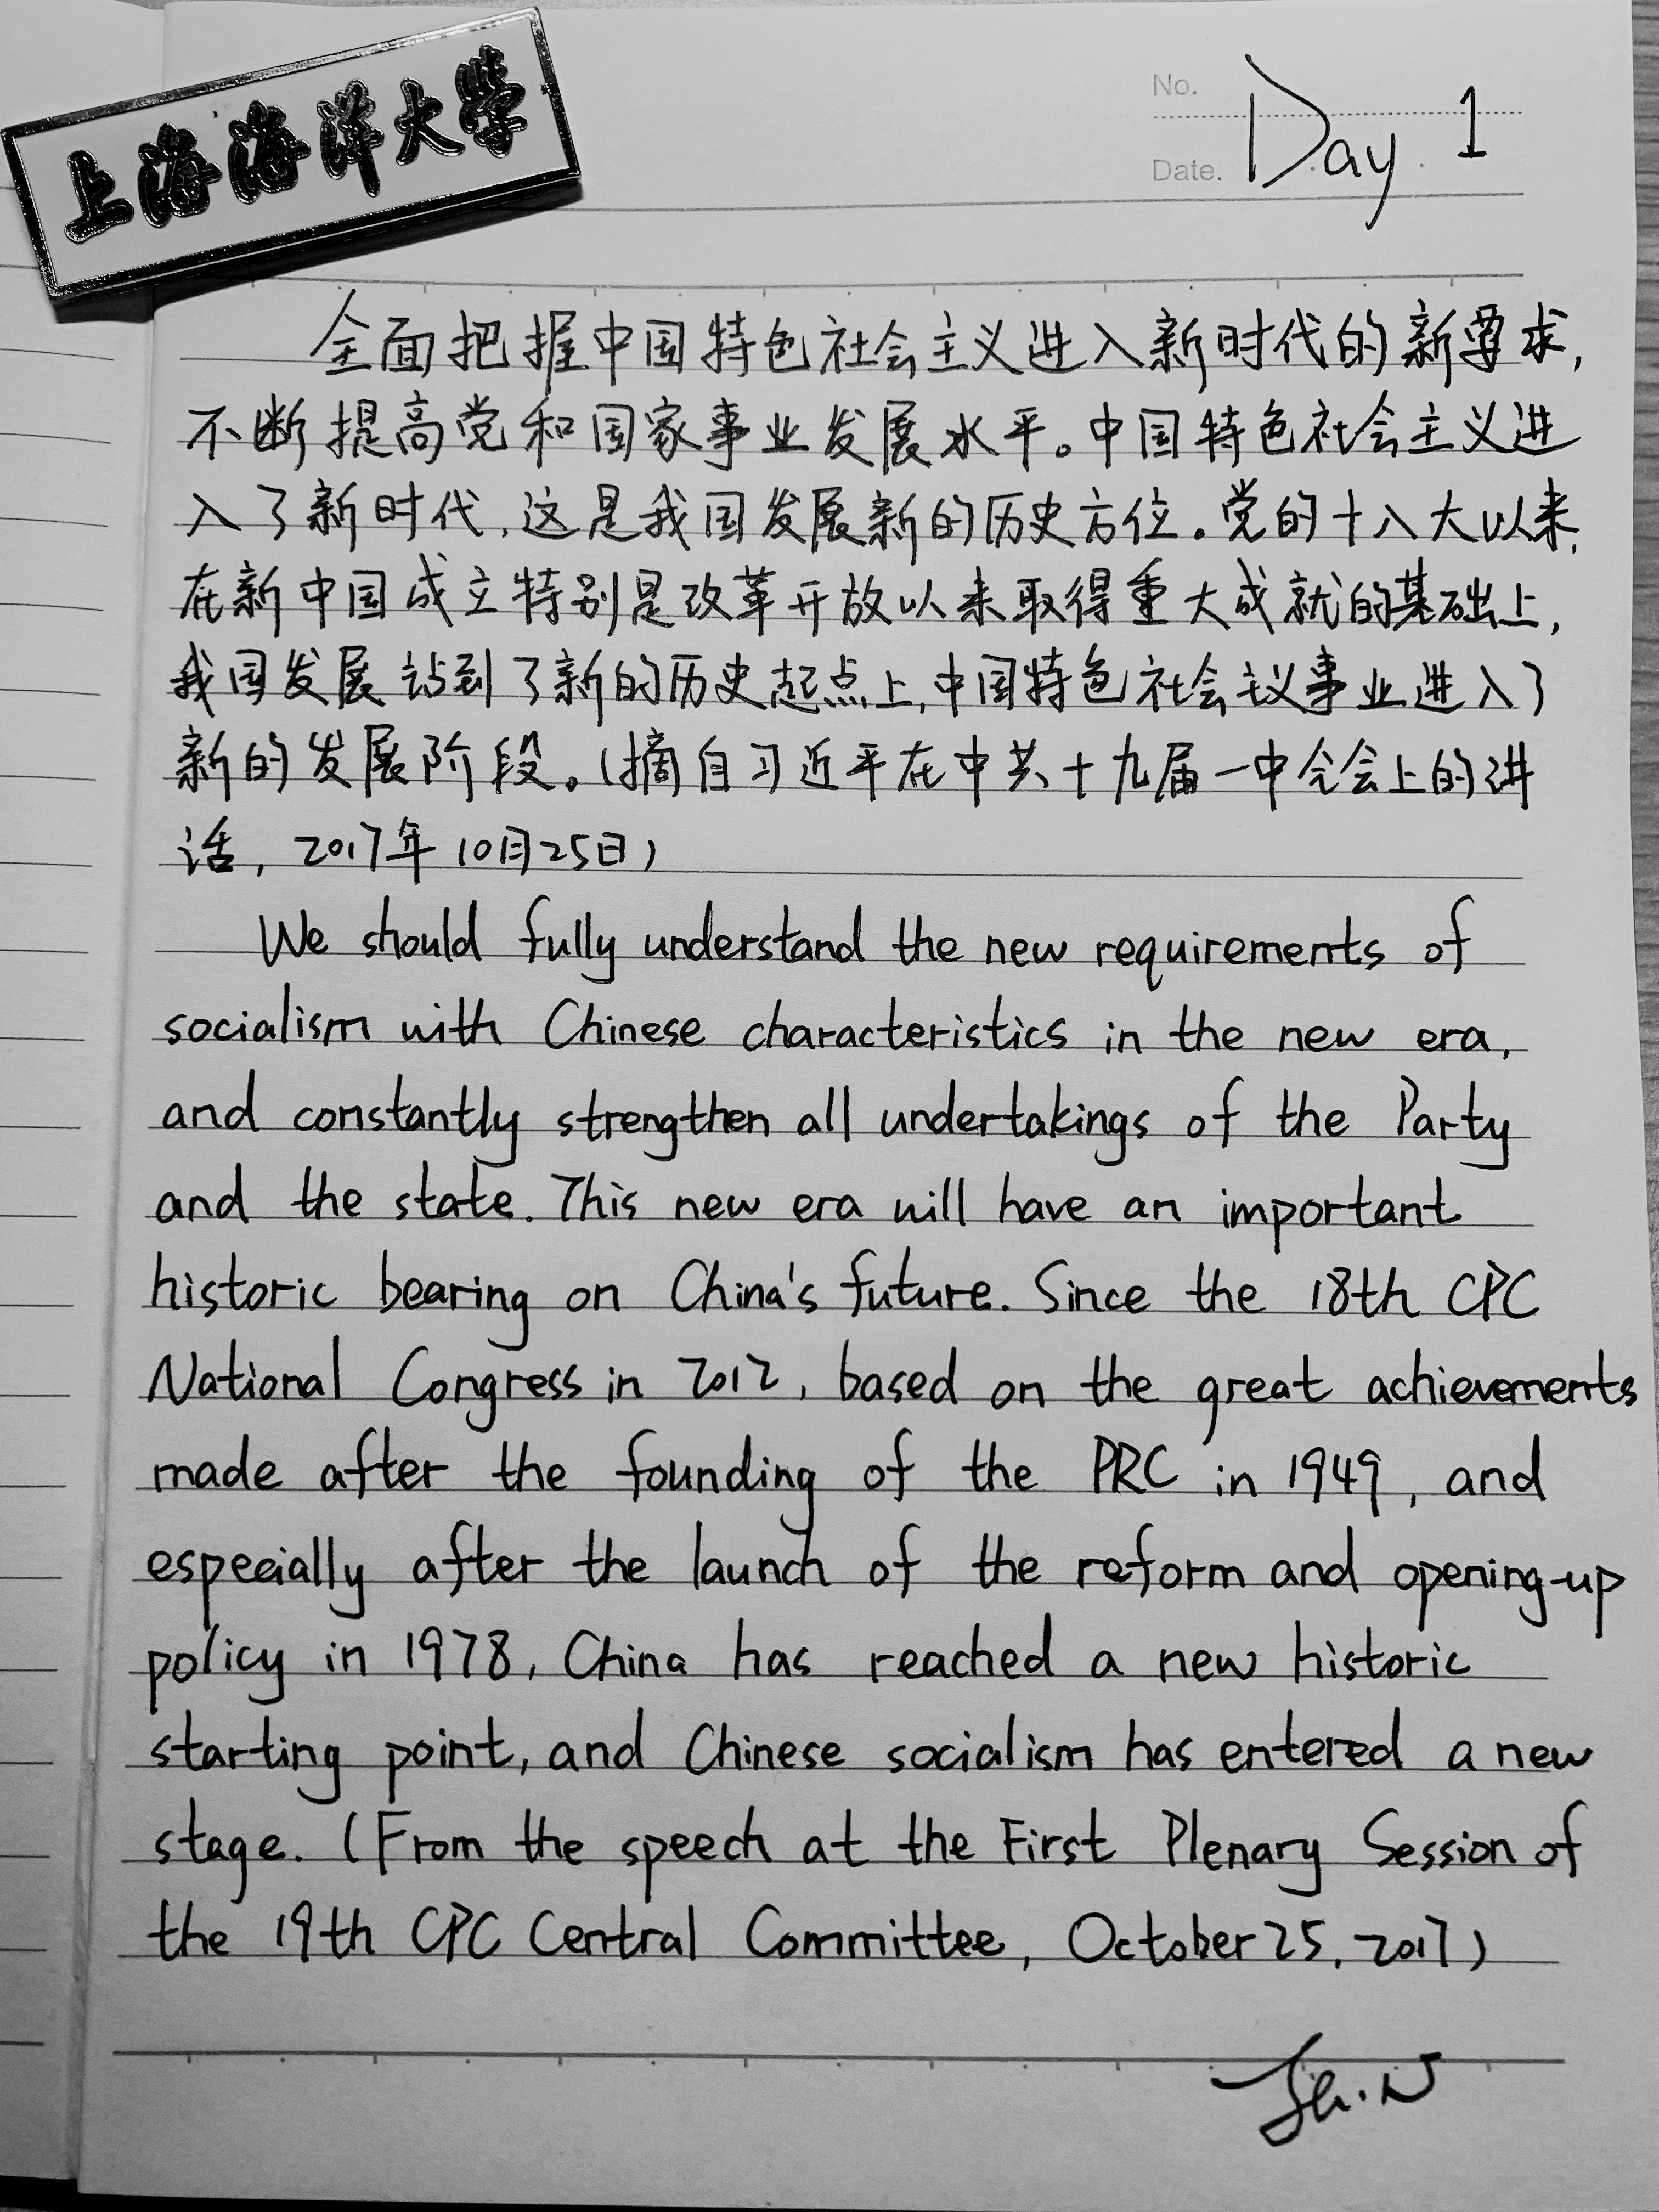 上海海洋大学
No.
Date. Day 1
全面把握中国特色社会主义进入新时代的新要求,
不断提高党和国家事业发展水平。中国特色社会主义进
入了新时代,这是我国发展新的历史方位。党的十八大以来,
在新中国成立特别是改革开放以来取得重大成就的基础上,
我国发展站到了新的历史起点上,中国特色社会主义事业进入了
新的发展阶段。(摘自习近平在中共十九届一中全会上的讲
话, 2017年10月25日)
We should fully understand the new requirements of
socialism with Chinese characteristics in the new era,
and constantly strengthen all undertakings of the Party
and the state. This new era will have an important
historic bearing on China's future. Since the 18th CPC
National Congress in 2012, based on the great achievements
made after the founding of the PRC in 1949, and
especially after the launch of the reform and opening-up
policy in 1978, China has reached a new historic
starting point, and Chinese socialism has entered a new
stage. (From the speech at the First Plenary Session of
the 19th CPC Central Committee, October 25, 2017)